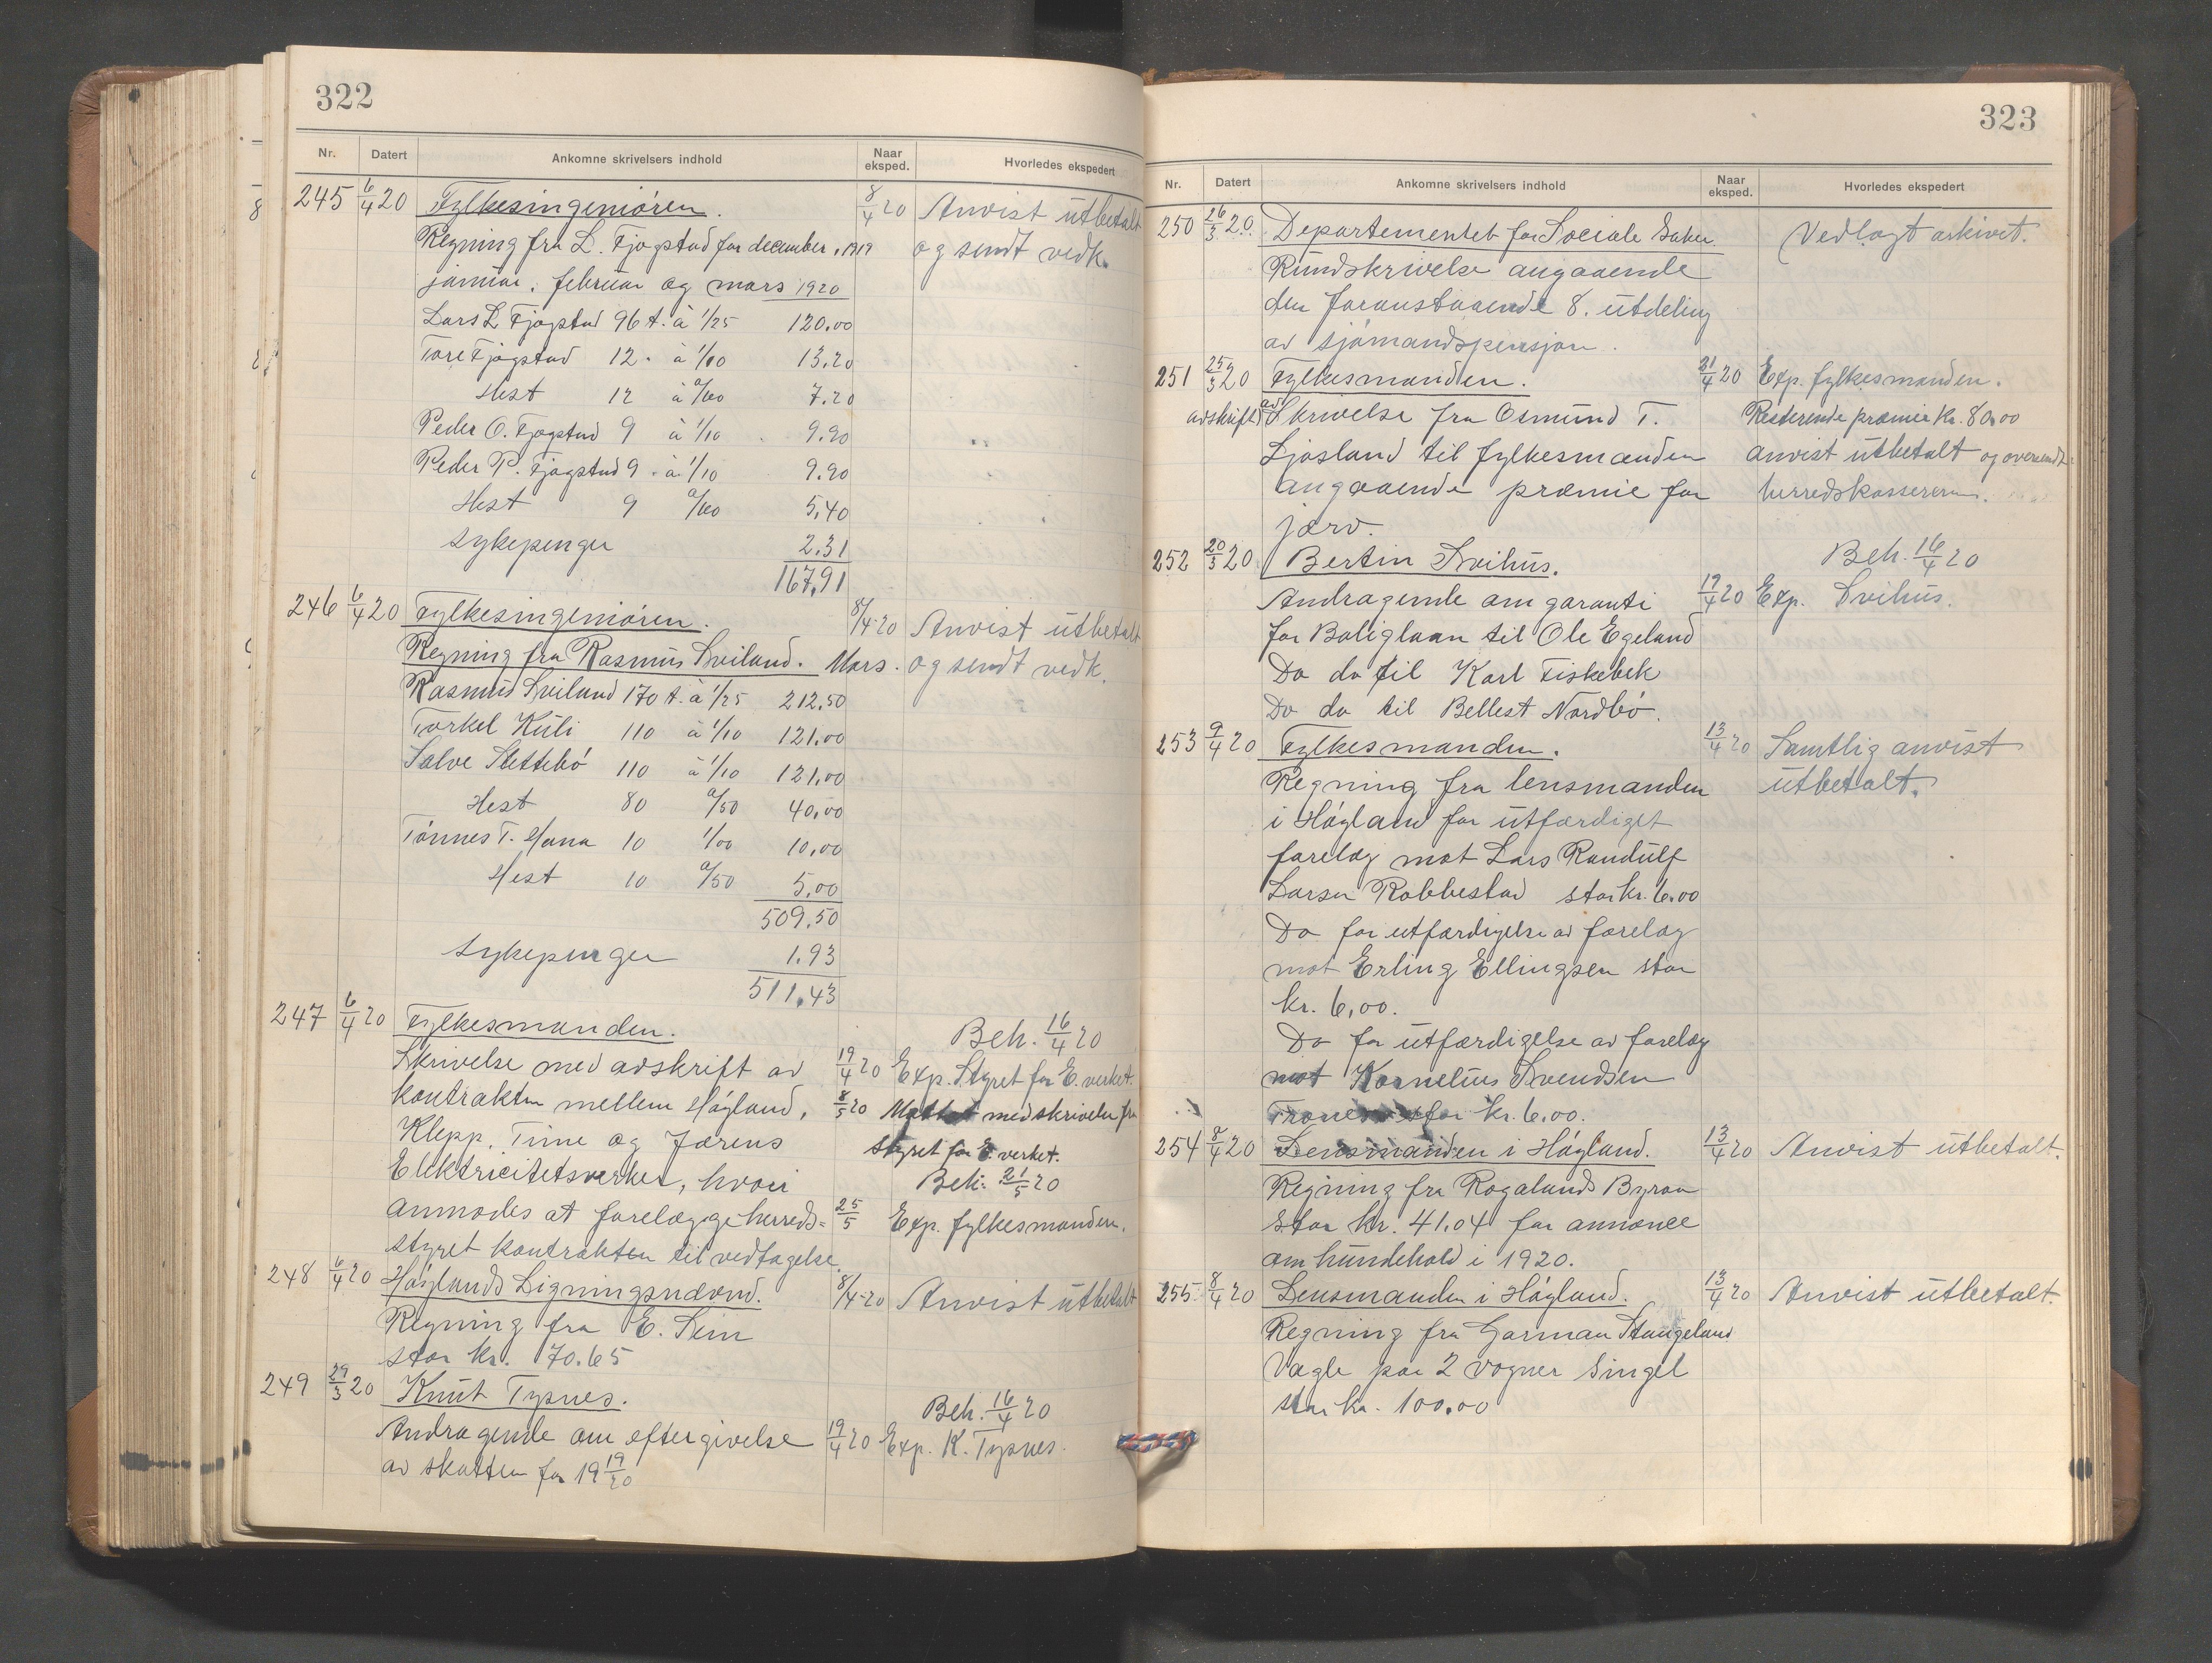 322
Nr. Datert Ankomne skrivelsers indhold Naar eksped. Hvorledes ekspedert
245 6/4 20 Fylkesingeniören. 8/4 20 Anvist utbetalt
Regning fra L. Fjogstad for december 1919 og sendt vedk.
januar, februar og mars 1920
Lars L Fjogstad 96 t. à 1/25 120.00
Tore Fjogstad 12 " à 1/10 13.20
Hest 12 à 0/60 7.20
Peder O. Fjogstad 9 à 1/10 9.90
Peder P. Fjogstad 9 " à 1/10 9.90
Hest 9 0/60 5,40
Sykepenger 2.31
167,91
246 6/4 20 Fylkesingeniören. 8/4-20 Anvist utbetalt
Regning fra Rasmus Sviland. Mars. og sendt vedk.
Rasmus Sviland 170 t. à 1/25 212,50
Torkel Kuli 110 à 1/10 121.00
Salve Slettebö 110 à 1/10 121,00
Hest 80 0/50 40,00
Tönnes T. Mana 10 1/00 10,00
Hest 10 0/50 5,00
509,50
Sykepenger 1.93
511,43
247 6/4 20 Fylkesmanden. Beh. 16/4 20
Skrivelse med avskrift av 19/4 20 Exp. Styret for E. verket.
kontrakten mellem Höyland, 8/5 20 Mottat med skrivelse fra
Klepp, Time og Jærens Styret for E. verket.
Elektricitetsverker, hvori Beh. 21/5 20
anmodes at forelægge herreds= 25/5 Exp. fylkesmanden.
styret kontrakten til vedtagelse.
248 6/4 20 Höylands Ligningsnævnd. 8/4-20 Anvist utbetalt
Regning fra E. Seim
stor kr. 70.65
249 29/3 20 Knut Tysnes. Beh. 16/4 20
Andragende om eftergivelse 19/4 20 Exp. K. Tysnes.
av skatten for 19 19/20
323
Nr. Datert Ankomne skrivelsers indhold Naar eksped. Hvorledes ekspedert
250 26/3 20. Departementet for Sociale Saker. Vedlagt arkivet.
Rundskrivelse angaaende
den foranstaaende 8. utdeling
av sjömandspensjon.
251 25/3 20 Fylkesmanden. 21/4 20 Exp. fylkesmanden.
avskrift av Skrivelse fra Osmund T. Resterende præmie kr. 80.00
Ljosland til fylkesmanden anvist utbetalt og oversendt
angaaende præmie for herredskassereren.
jærv.
252 20/3 20 Bertin Svihus. Beh. 16/4 20
Andragende om garanti 19/4 20 Exp. Svihus.
for Boliglaan til Ole Egeland
Do do til Karl Fiskebek
Do do til Bellest Nordbö.
253 9/4 20 Fylkesmanden. 13/4 20 Samtlig anvist
Regning fra lensmanden utbetalt.
i Höyland for utfærdiget
forelæg mot Lars Randulf
Larsen Robbestad stor kr. 6.00
Do for utfærdigelse av forelæg
mot Erling Ellingsen stor
kr. 6,00.
Do for utfærdigelse av forelæg
mot Kornelius Svendsen
Trones stor kr. 6.00.
254 8/4 20 Lensmanden i Höyland. 13/4 20 Anvist utbetalt.
Regning fra Rogalands Byraa
stor kr. 41.04 for annonce
om hundehold i 1920.
255 8/4 20 Lensmanden i Höyland. 13/4 20 Anvist utbetalt.
Regning fra Garman Stangeland
Vagle paa 2 vogner Singel
stor kr. 100.00